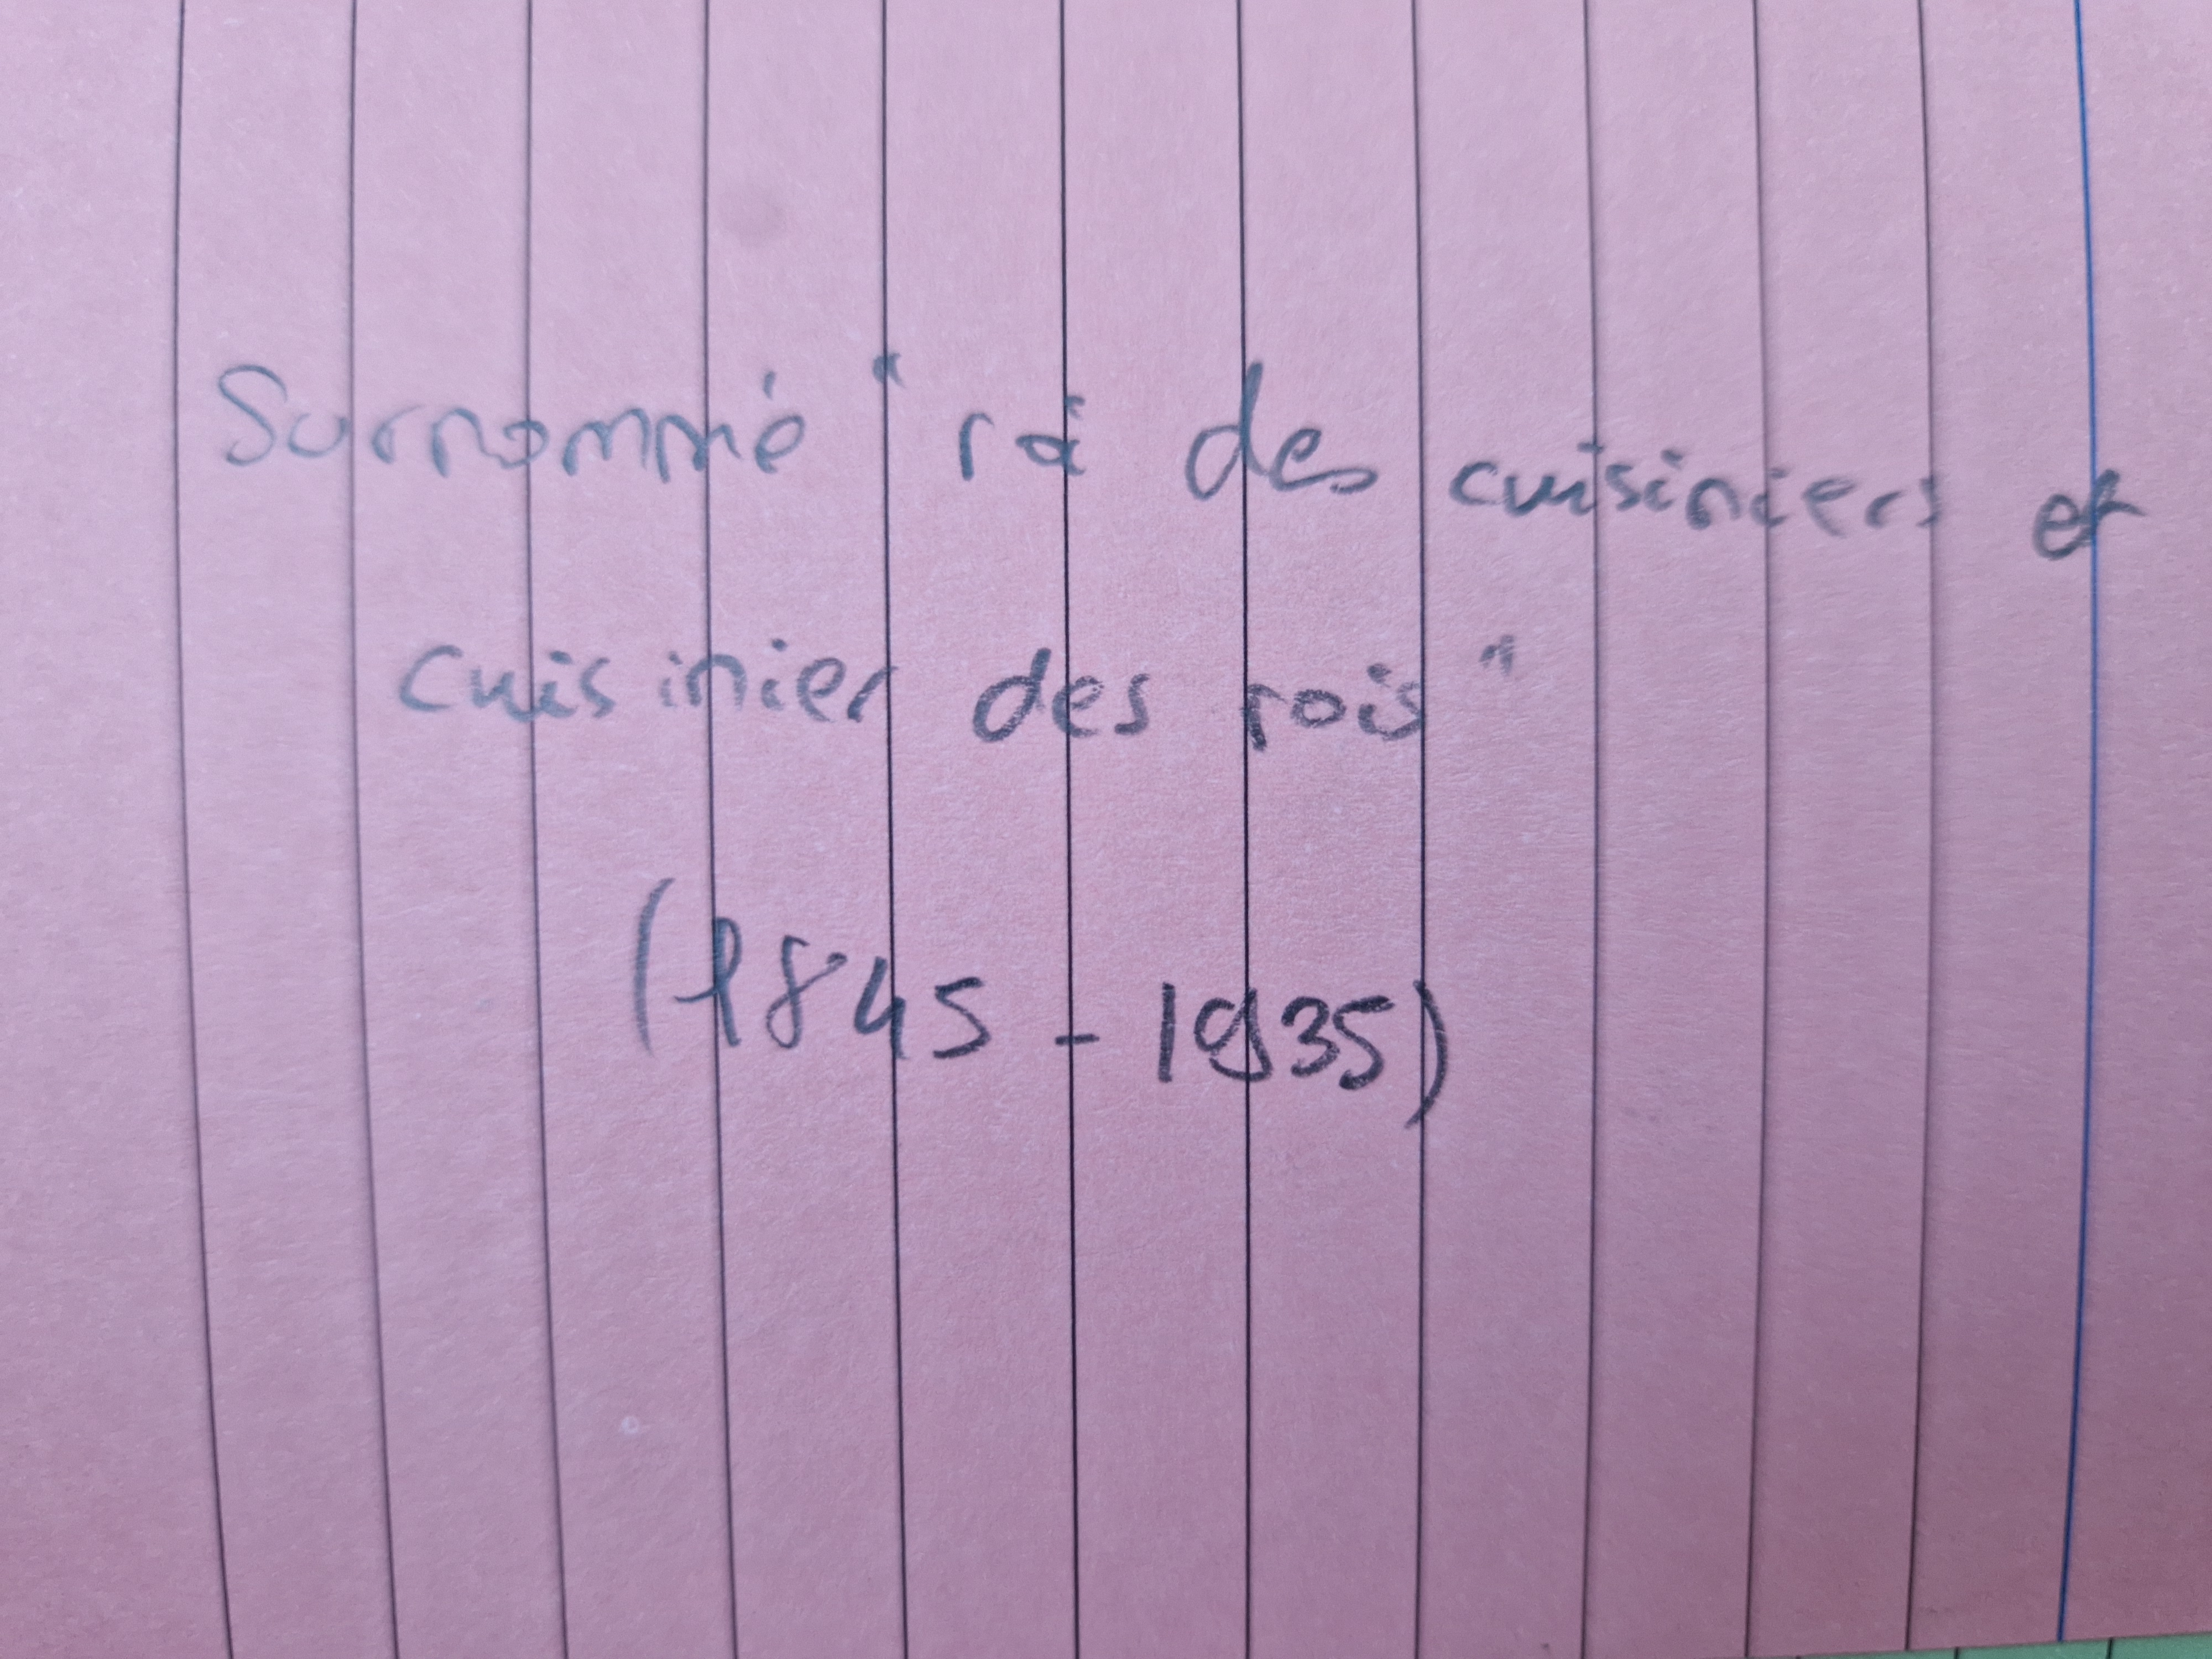 Surnommé "roi des cuisiniers et
cuisinier des rois"
(1845 - 1935)